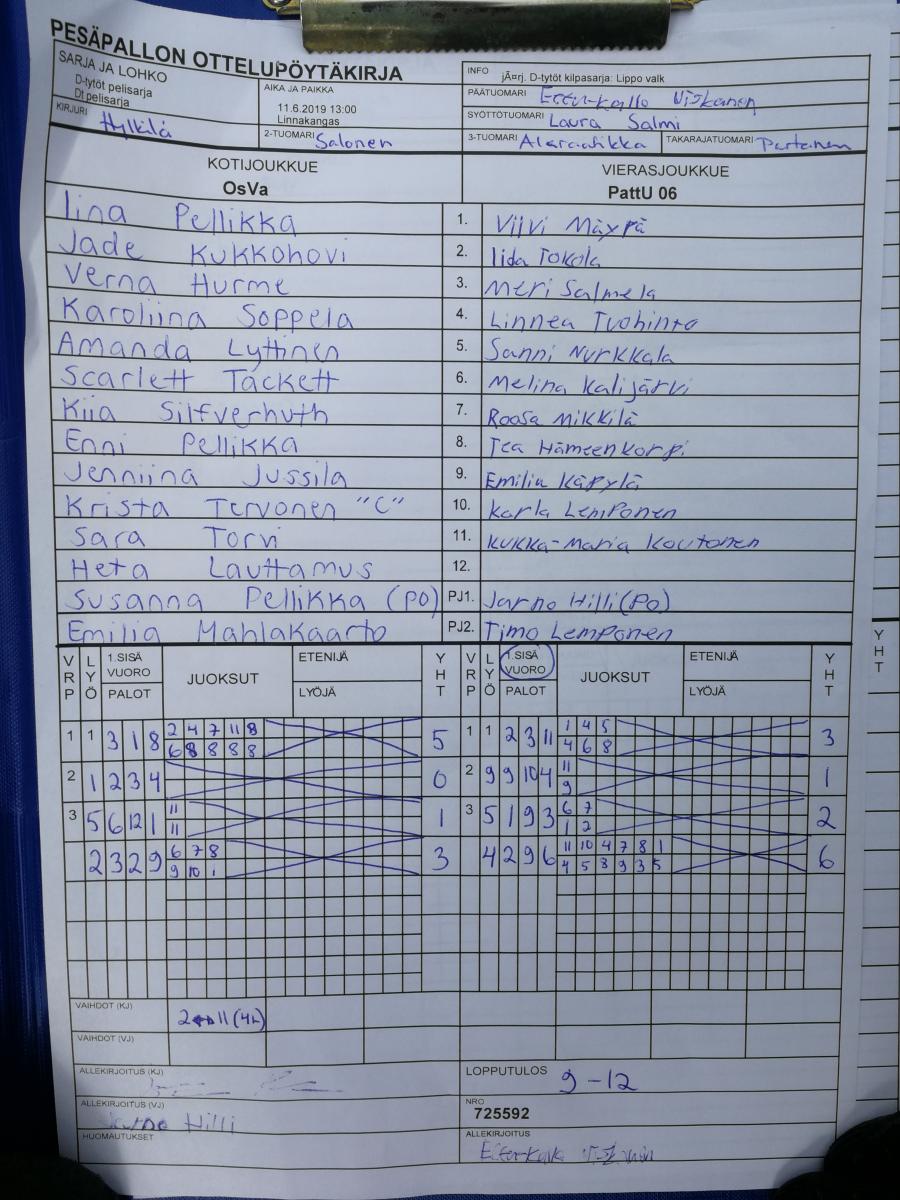 PESÄPALLON OTTELUPÖYTÄKIRJA
SARJA JA LOHKO
D-tytöt pelisarja
Dt pelisarja
AIKA JA PAIKKA
11.6.2019 13:00
Linnakangas
INFO jÃ¤rj. D-tytöt kilpasarja: Lippo valk
PÄÄTUOMARI
SYÖTTÖTUOMARI Laura Salmi
KIRJURI Hylkilä
2-TUOMARI Salonen
3-TUOMARI
TAKARAJATUOMARI Partanen
KOTIJOUKKUE VIERASJOUKKUE
OsVa PattU 06
Iina Pellikka 1. Viivi Mäypä
Jade Kukkohovi 2. Iida Tokola
Verna Hurme 3. Meri Salmela
Karoliina Soppela 4. Linnea Tuohinto
Amanda Lyttinen 5. Sanni Nurkkala
Scarlett Tackett 6. Melina Kalijärvi
Kiia Silfverhuth 7. Roosa Mikkilä
Enni Pellikka 8. Tea Hämeenkorpi
Jenniina Jussila 9. Emilia Käpylä
Krista Tervonen "C" 10. Karla Lemponen
Sara Torvi 11. Kukka-Maria Koutonen
Heta Lauttamus 12.
Susanna Pellikka (PO) PJ1. Jarno Hilli (PO)
Emilia Mahlakaarto PJ2. Timo Lemponen
VRP LYÖ 1.SISÄ VUORO PALOT JUOKSUT ETENIJÄ LYÖJÄ YHT VRP LYÖ 1.SISÄ VUORO PALOT JUOKSUT ETENIJÄ LYÖJÄ YHT YHT
1 1 3 1 8 2 4 7 11 8 5 1 1 2 3 11 1 4 5 3
6 8 8 8 8 4 6 8
2 1 2 3 4 0 2 9 9 10 4 11 1
9
3 5 6 12 1 11 1 3 5 1 9 3 6 7 2
11 1 2
2 3 2 9 6 7 8 3 4 2 9 6 11 10 4 7 8 1 6
9 10 1 4 5 8 9 3 5
VAIHDOT (KJ) 2↔11 (4L)
VAIHDOT (VJ)
ALLEKIRJOITUS (KJ)
LOPPUTULOS 9-12
ALLEKIRJOITUS (VJ) Jarno Hilli
NRO
725592
HUOMAUTUKSET
ALLEKIRJOITUS